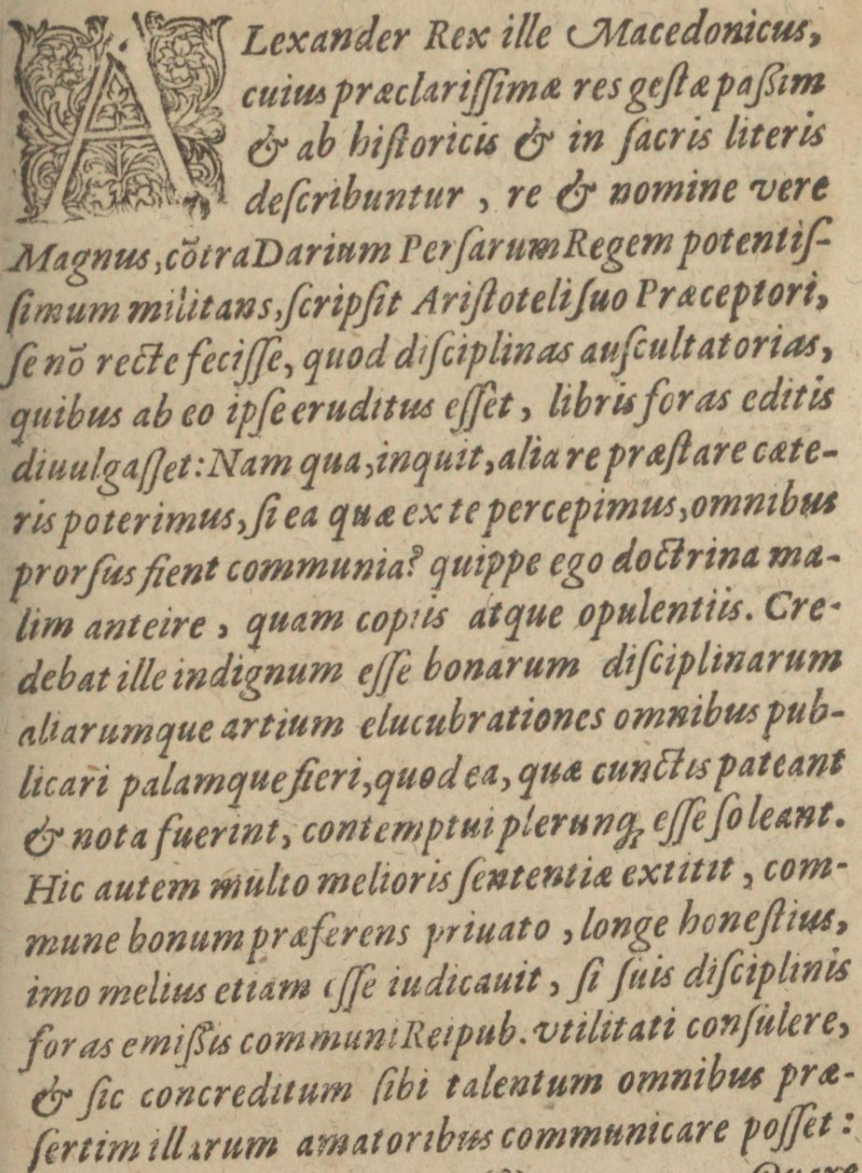 ALexander Rex ille Macedonicus,
cuius præclariſſimæ res geſtæ paßim
& ab hiſtoricis & in ſacris literis
deſcribuntur , re & nomine vere
Magnus, cõtra Darium Perſarum Regem potentiſ-
ſimum militans, ſcripſit Ariſtoteli ſuo Præceptori,
ſe nõ recte feciſſe, quod diſciplinas auſcultatorias,
quibus ab eo ipſe eruditus eſſet , libris foras editis
diuulgaſſet: Nam qua, inquit, alia re præſtare cæte-
ris poterimus, ſi ea quæ ex te percepimus, omnibus
prorſus fient communia? quippe ego doctrina ma-
lim anteire , quam copiis atque opulentiis. Cre-
debat ille indignum eſſe bonarum diſciplinarum
aliarumque artium elucubrationes omnibus pub-
licari palamque fieri, quod ea, quæ cunctis pateant
& nota fuerint, contemptui plerunq; eſſe ſoleant.
Hic autem multo melioris ſententiæ extitit , com-
mune bonum præferens priuato , longe honeſtius,
imo melius etiam eſſe iudicauit , ſi ſuis diſciplinis
foras emißis communi Reipub. vtilitati conſulere,
& ſic concreditum ſibi talentum omnibus præ-
ſertim illarum amatoribus communicare poſſet :